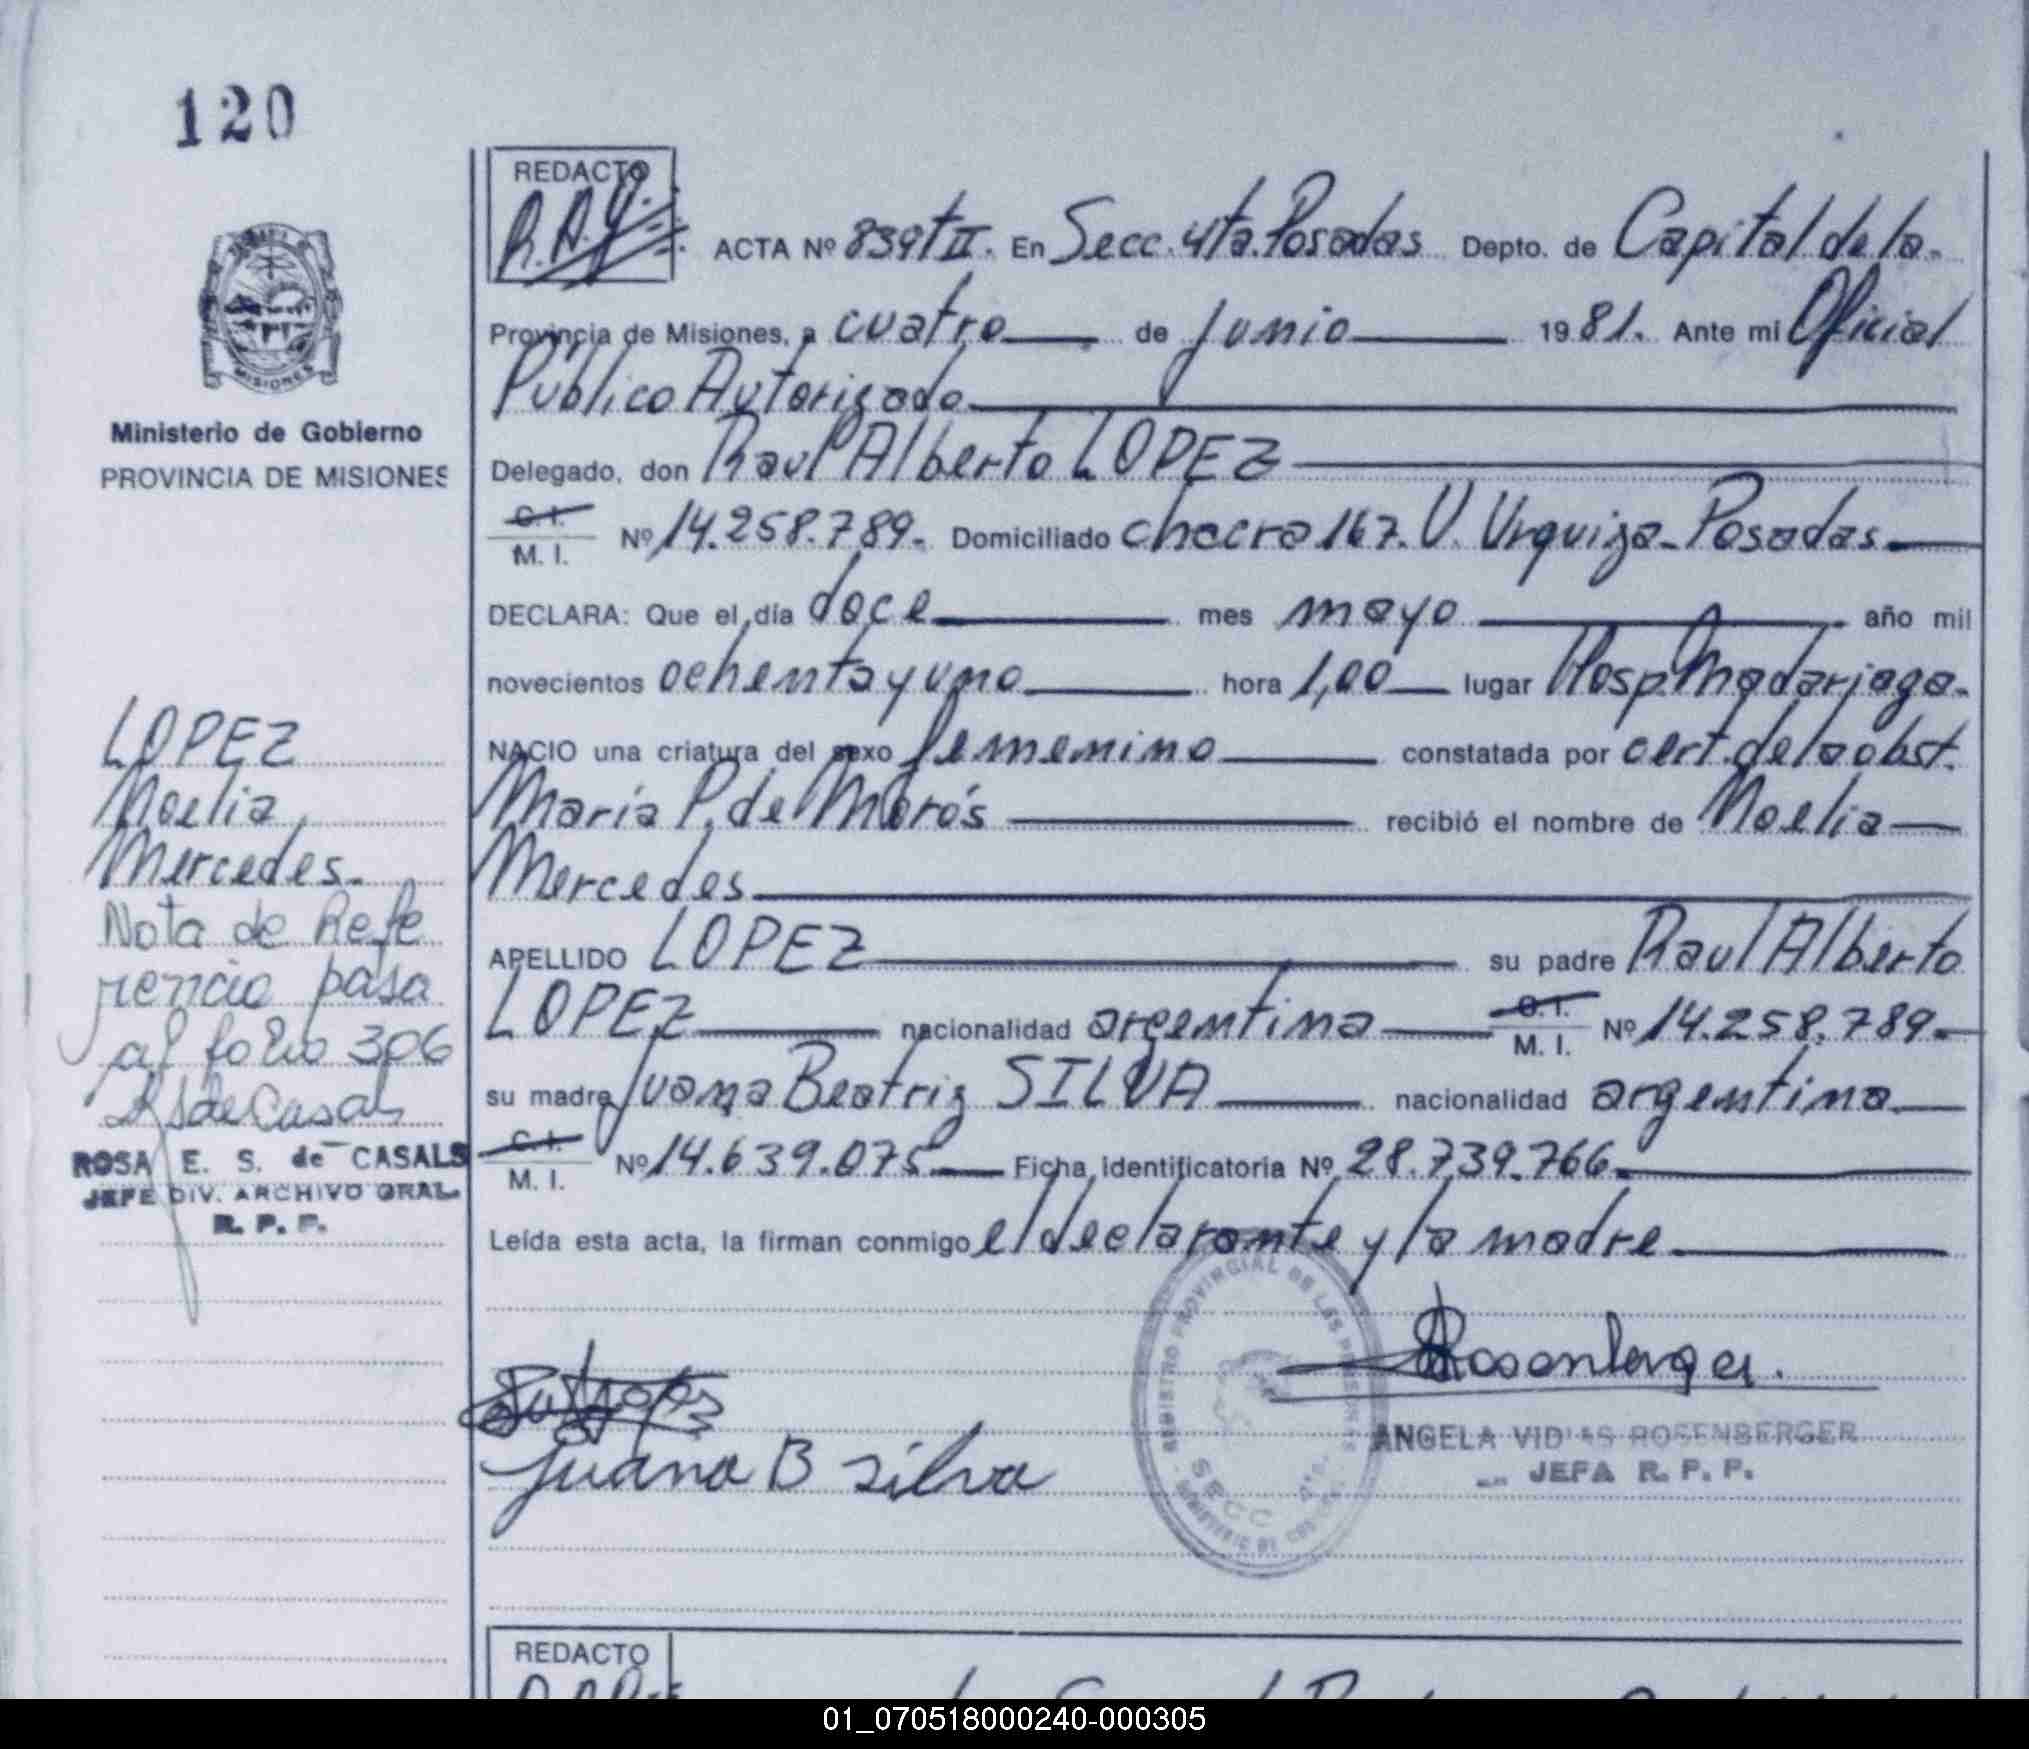 120
REDACTO
R.A.Y.
ACTA Nº 839 tII. En Secc. 4ta. Posadas Depto. de Capital de la
Provincia de Misiones, a cuatro de Junio 1981. Ante mi Oficial
Público Autorizado
Delegado, don Raul Alberto LOPEZ
C. I.
M. I. Nº 14.258.789. Domiciliado chacra 167. V. Urquiza - Posadas
DECLARA: Que el día doce mes mayo año mil
novecientos ochenta y uno hora 1,00 lugar Hosp. Madariaga.
NACIO una criatura del sexo femenino constatada por cert. de la obst.
María P. de Morós recibió el nombre de Noelia
Mercedes
APELLIDO LOPEZ su padre Raul Alberto
LOPEZ nacionalidad argentina C. I. M. I. Nº 14.258.789.
su madre Juana Beatriz SILVA nacionalidad argentina
C. I.
M. I. Nº 14.639.075 Ficha identificatoria Nº 28.739.766
Leída esta acta, la firman conmigo el declarante y la madre
Rosenberger.
ANGELA VIDIAS ROSENBERGER
JEFA R. P. P.
Juana B silva
REGISTRO PROVINCIAL DE LAS PERSONAS
SECC 4ta.
MINISTERIO DE GOBIERNO
MISIONES
Ministerio de Gobierno
PROVINCIA DE MISIONES
LOPEZ
Noelia
Mercedes
Nota de Refe
rencia pasa
al folio 306
RSdeCasals
ROSA E. S. de CASALS
JEFE DIV. ARCHIVO GRAL.
R. P. P.
REDACTO
01_070518000240-000305